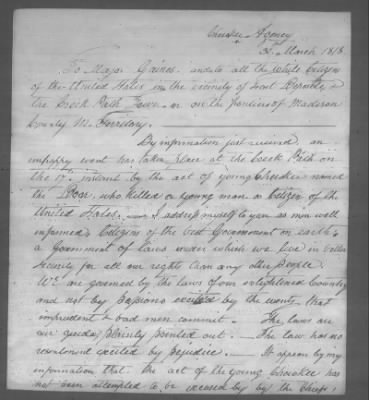 Cherokee Agency
30. March 1813
To Major Gaines and to all the white Citizens
of the United States in the vicinity of Fort Deposit &
the Creek Path Town or on the frontiers of Madison
County M. Territory.
By information just received an
unhappy event has taken place at the Creek Path on
the instant by the act of young Cherokee named
the Boar who killed a young man a Citizen of the
United States. I address myself to you as men well
informed Citizens of the best Government on earth &
a Government of laws under which we live in better
security for all our rights than any other People
We are governed by the laws of our enlightened Country
and not by Passions excited by the events that
imprudent & bad men commit. The laws are
our guides plainly pointed out. The law has no
resentment excited by Prejudice. It appears by my
information that the act of the young Cherokee has
not been attempted to be excused by by the Chiefs